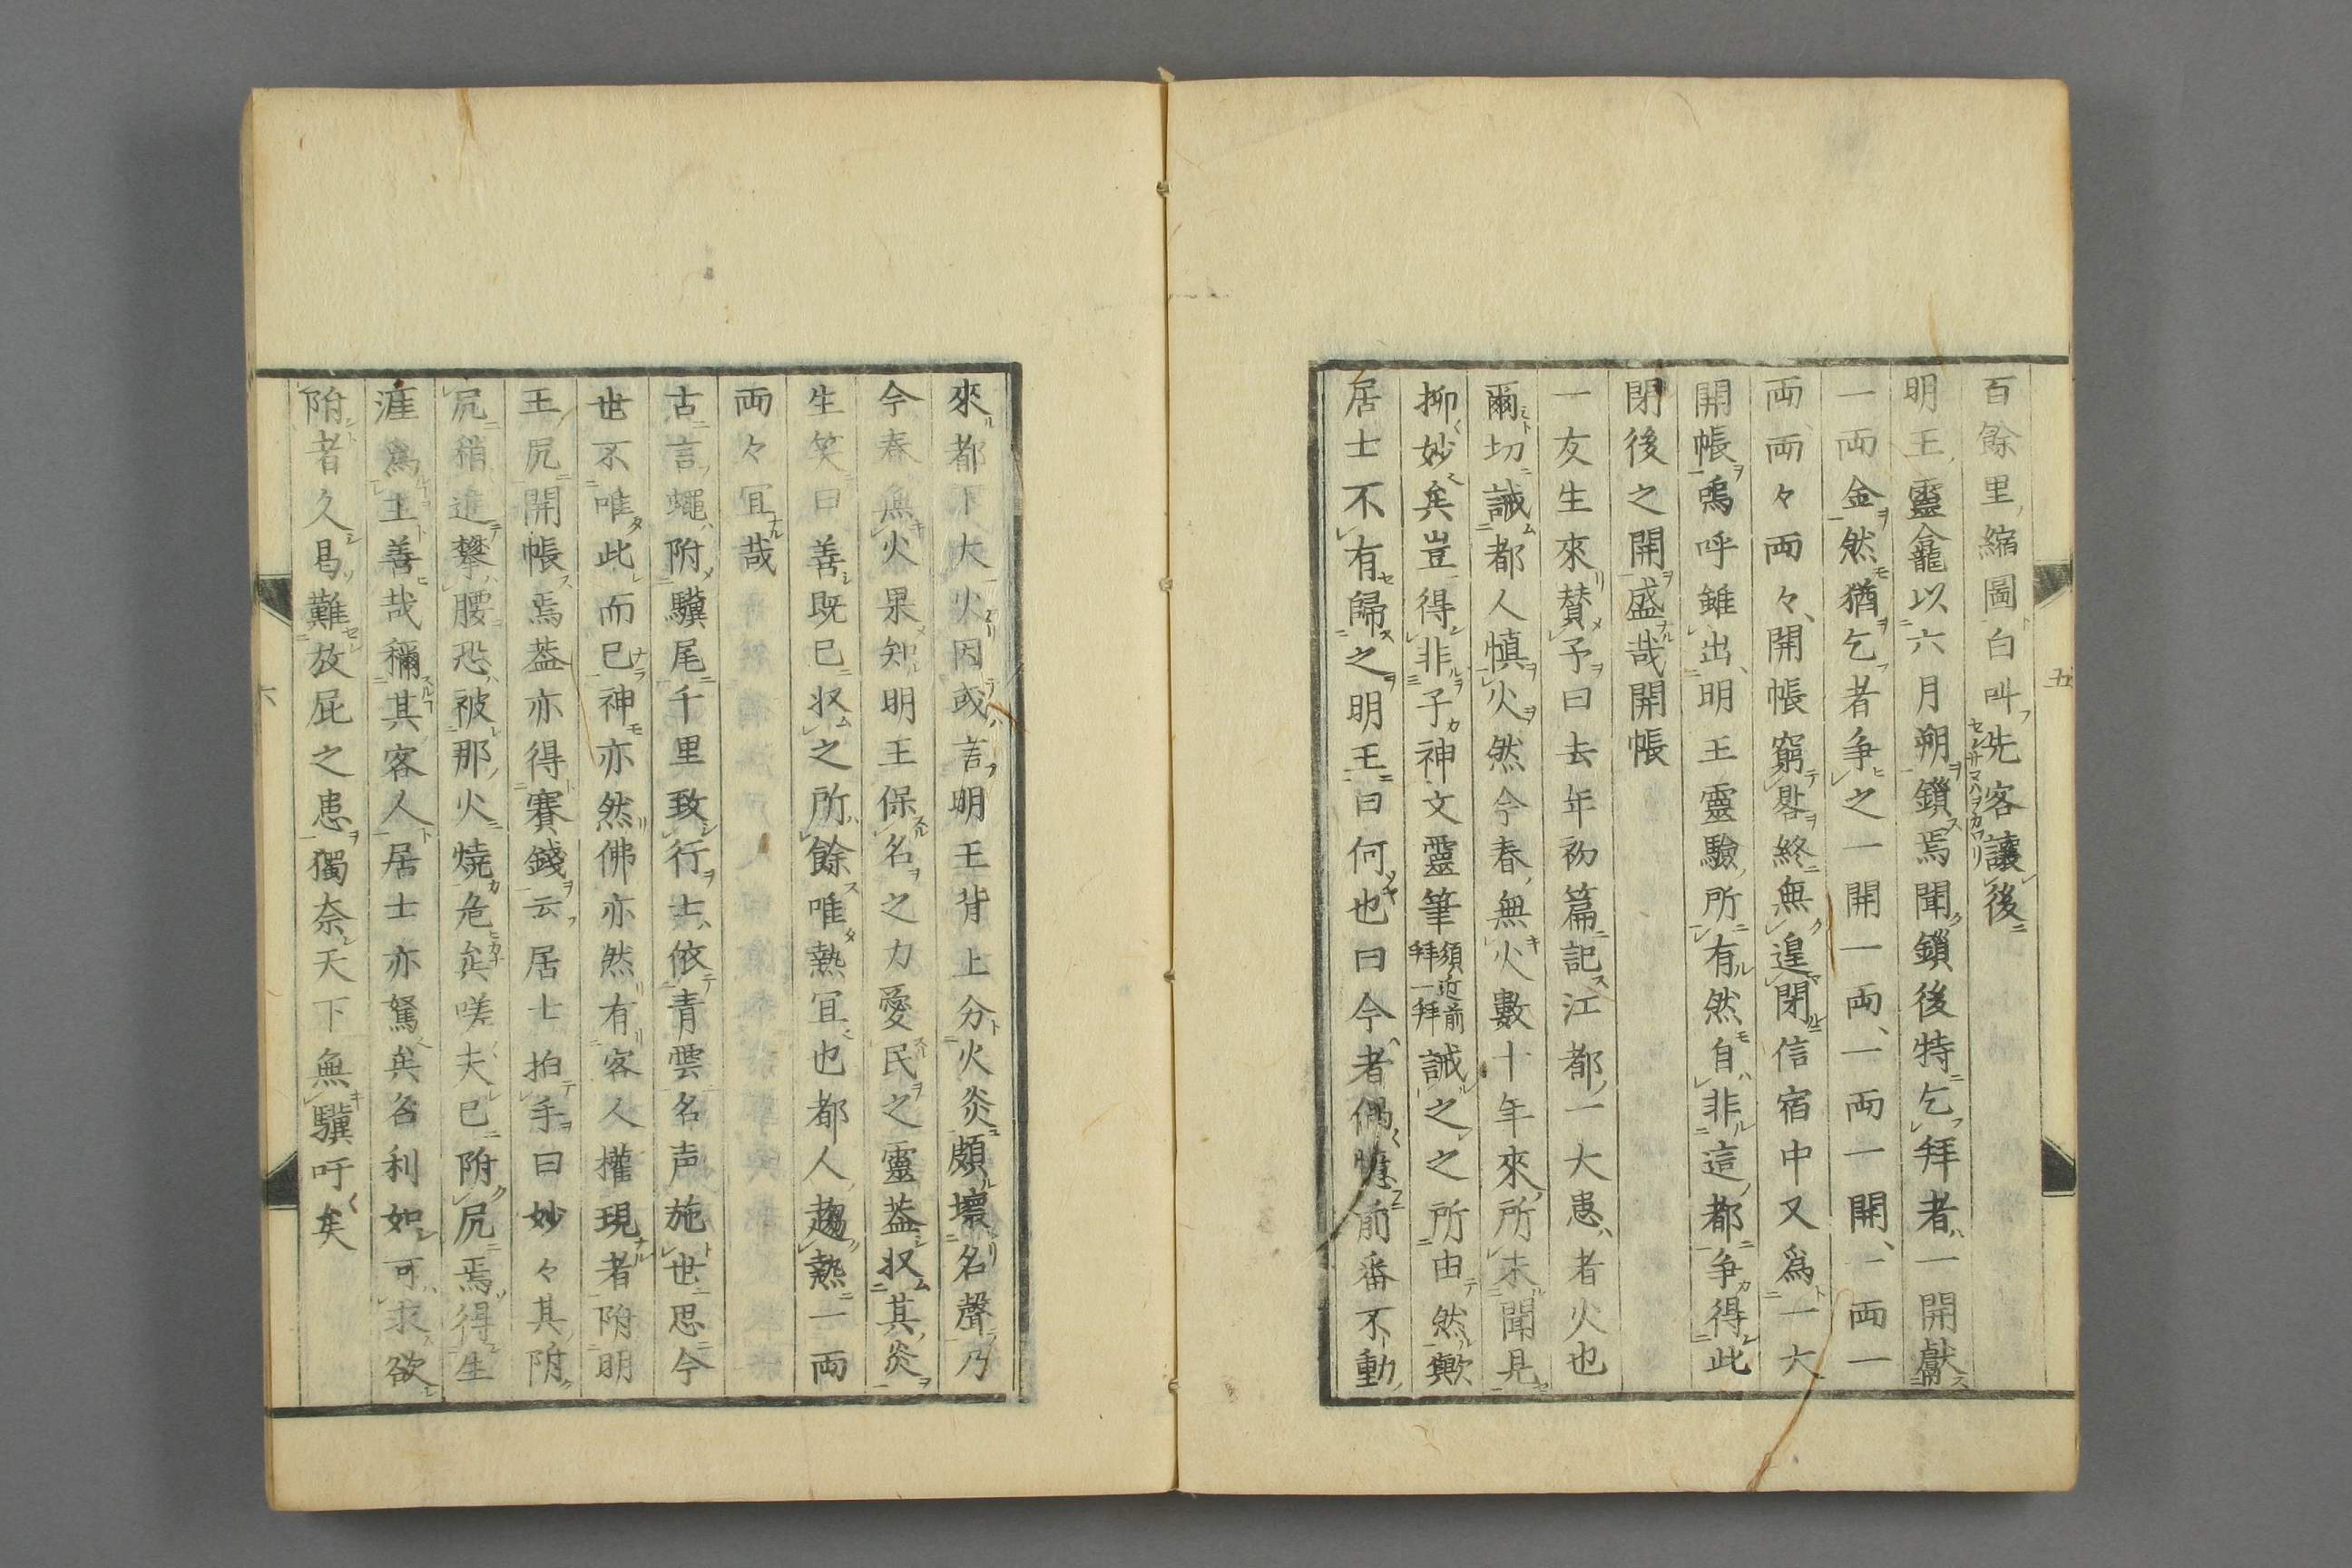 百餘里縮圖白叫先客讓後
明王靈龕以六月朔鎖焉聞鎖後特乞拜者一開獻
一両金然猶乞者爭之一開一両、一両一開、一両一
両、両々両々、開帳窮晷終無遑閉信宿中又爲一大
開帳嗚呼錐出、明王靈驗所有然自非這都爭得此
閉後之開盛哉開帳
一友生來賛予曰去年初篇記江都一大患者火也
爾切誡都人愼火然今春無火數十年來所未聞見
抑妙矣豈得非子神文靈筆須近前拜一拜誡之之所由然歟
居士不有歸之明王曰何也曰今者偶惟前番不動
來都下大火因或言明王背上分火炎頗壞名聲乃
今春無火果知明王保名之力愛民之靈蓋収其炎
生笑曰善既已収之所餘唯熱宜也都人趨熱一両
両々宜哉
古言蠅附驥尾千里致行士依青雲名声施世思今
世不唯此而已神亦然佛亦然有客人權現者附明
王尻開帳焉蓋亦得賽錢云居士拍手曰妙々其附
尻稍進擊腰恐被那火燒危矣嗟夫已附尻焉得生
涯爲主善哉稱其客人居士亦駑矣名利如可求欲
附者久曷難放屁之患獨奈天下無驥吁矣
五
六